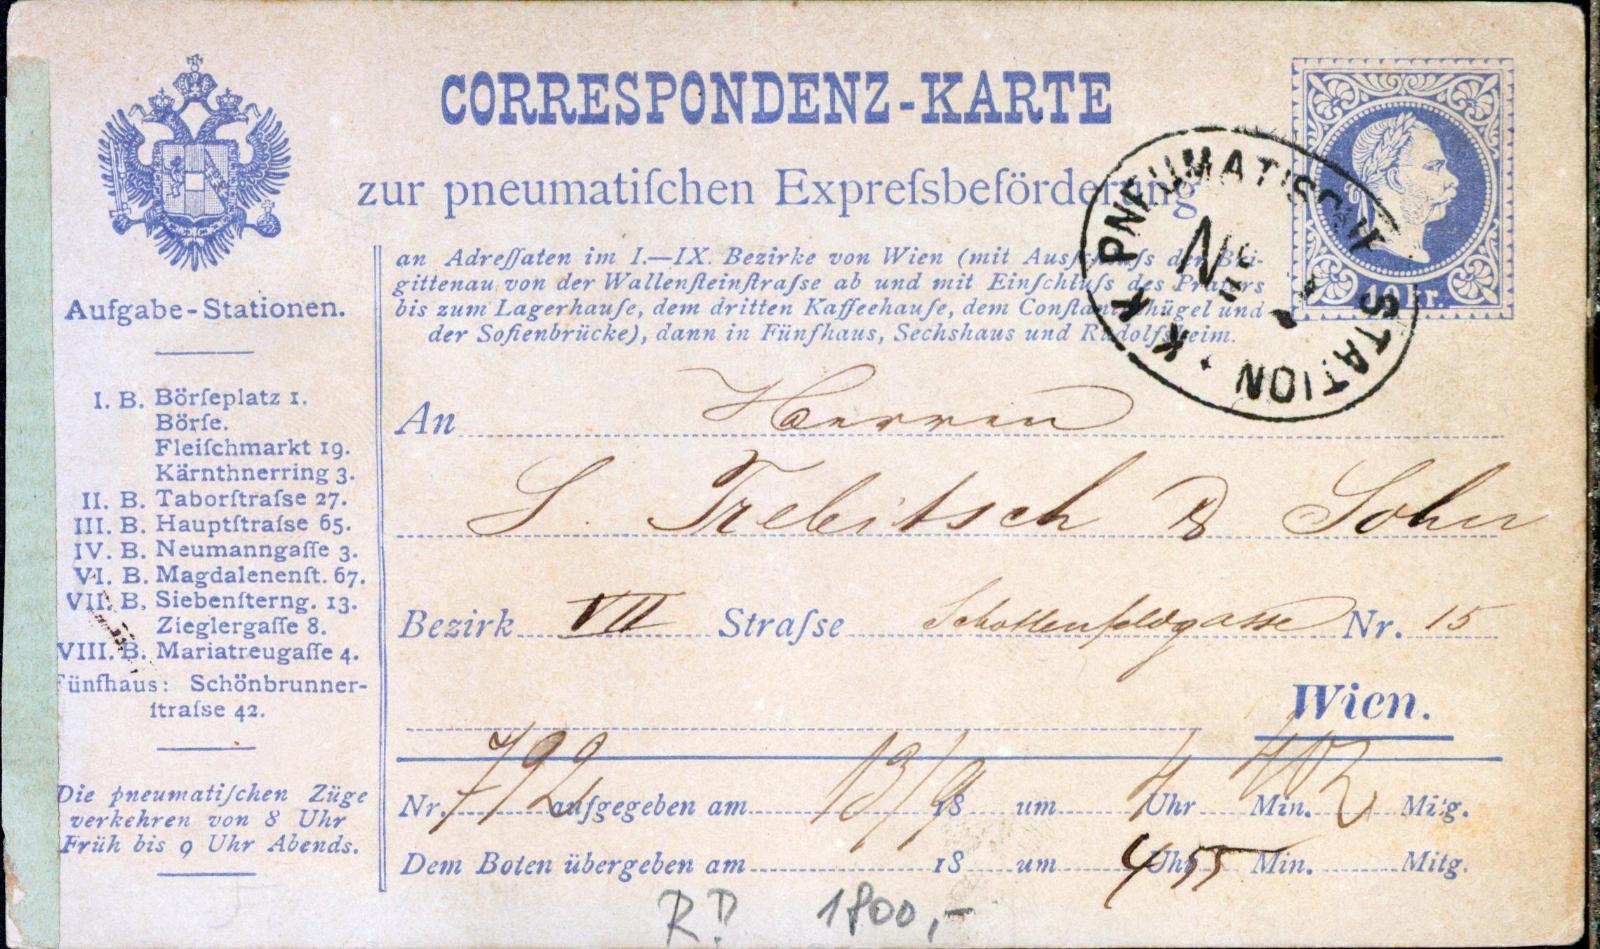 CORRESPONDENZ-KARTE
zur pneumatiſchen Expreſsbeförderung
an Adreſſaten im I.—IX. Bezirke von Wien (mit Ausſchluſs der Bri-
gittenau von der Wallenſteinſtraſse ab und mit Einſchluſs des Praters
bis zum Lagerhauſe, dem dritten Kaffeehauſe, dem Conſtantinhügel und
der Sofienbrücke), dann in Fünfhaus, Sechshaus und Rudolfsheim.
10 Kr.
K K PNEUMATISCHE STATION
No
Aufgabe-Stationen.
I. B. Börſeplatz 1.
Börſe.
Fleiſchmarkt 19.
Kärnthnerring 3.
II. B. Taborſtraſse 27.
III. B. Hauptſtraſse 65.
IV. B. Neumanngaſſe 3.
VI. B. Magdalenenſt. 67.
VII. B. Siebenſterng. 13.
Zieglergaſſe 8.
VIII. B. Mariatreugaſſe 4.
Fünfhaus: Schönbrunner-
ſtraſse 42.
Die pneumatiſchen Züge
verkehren von 8 Uhr
Früh bis 9 Uhr Abends.
An Herren
S. Trebitsch & Sohn
Bezirk VII Straſse Schottenfeldgasse Nr. 15
Wien.
Nr. 792 aufgegeben am 13/9 18 um 4 Uhr Min. Mitg.
Dem Boten übergeben am 18 um 4 Uhr 55 Min. Mitg.
1800,-